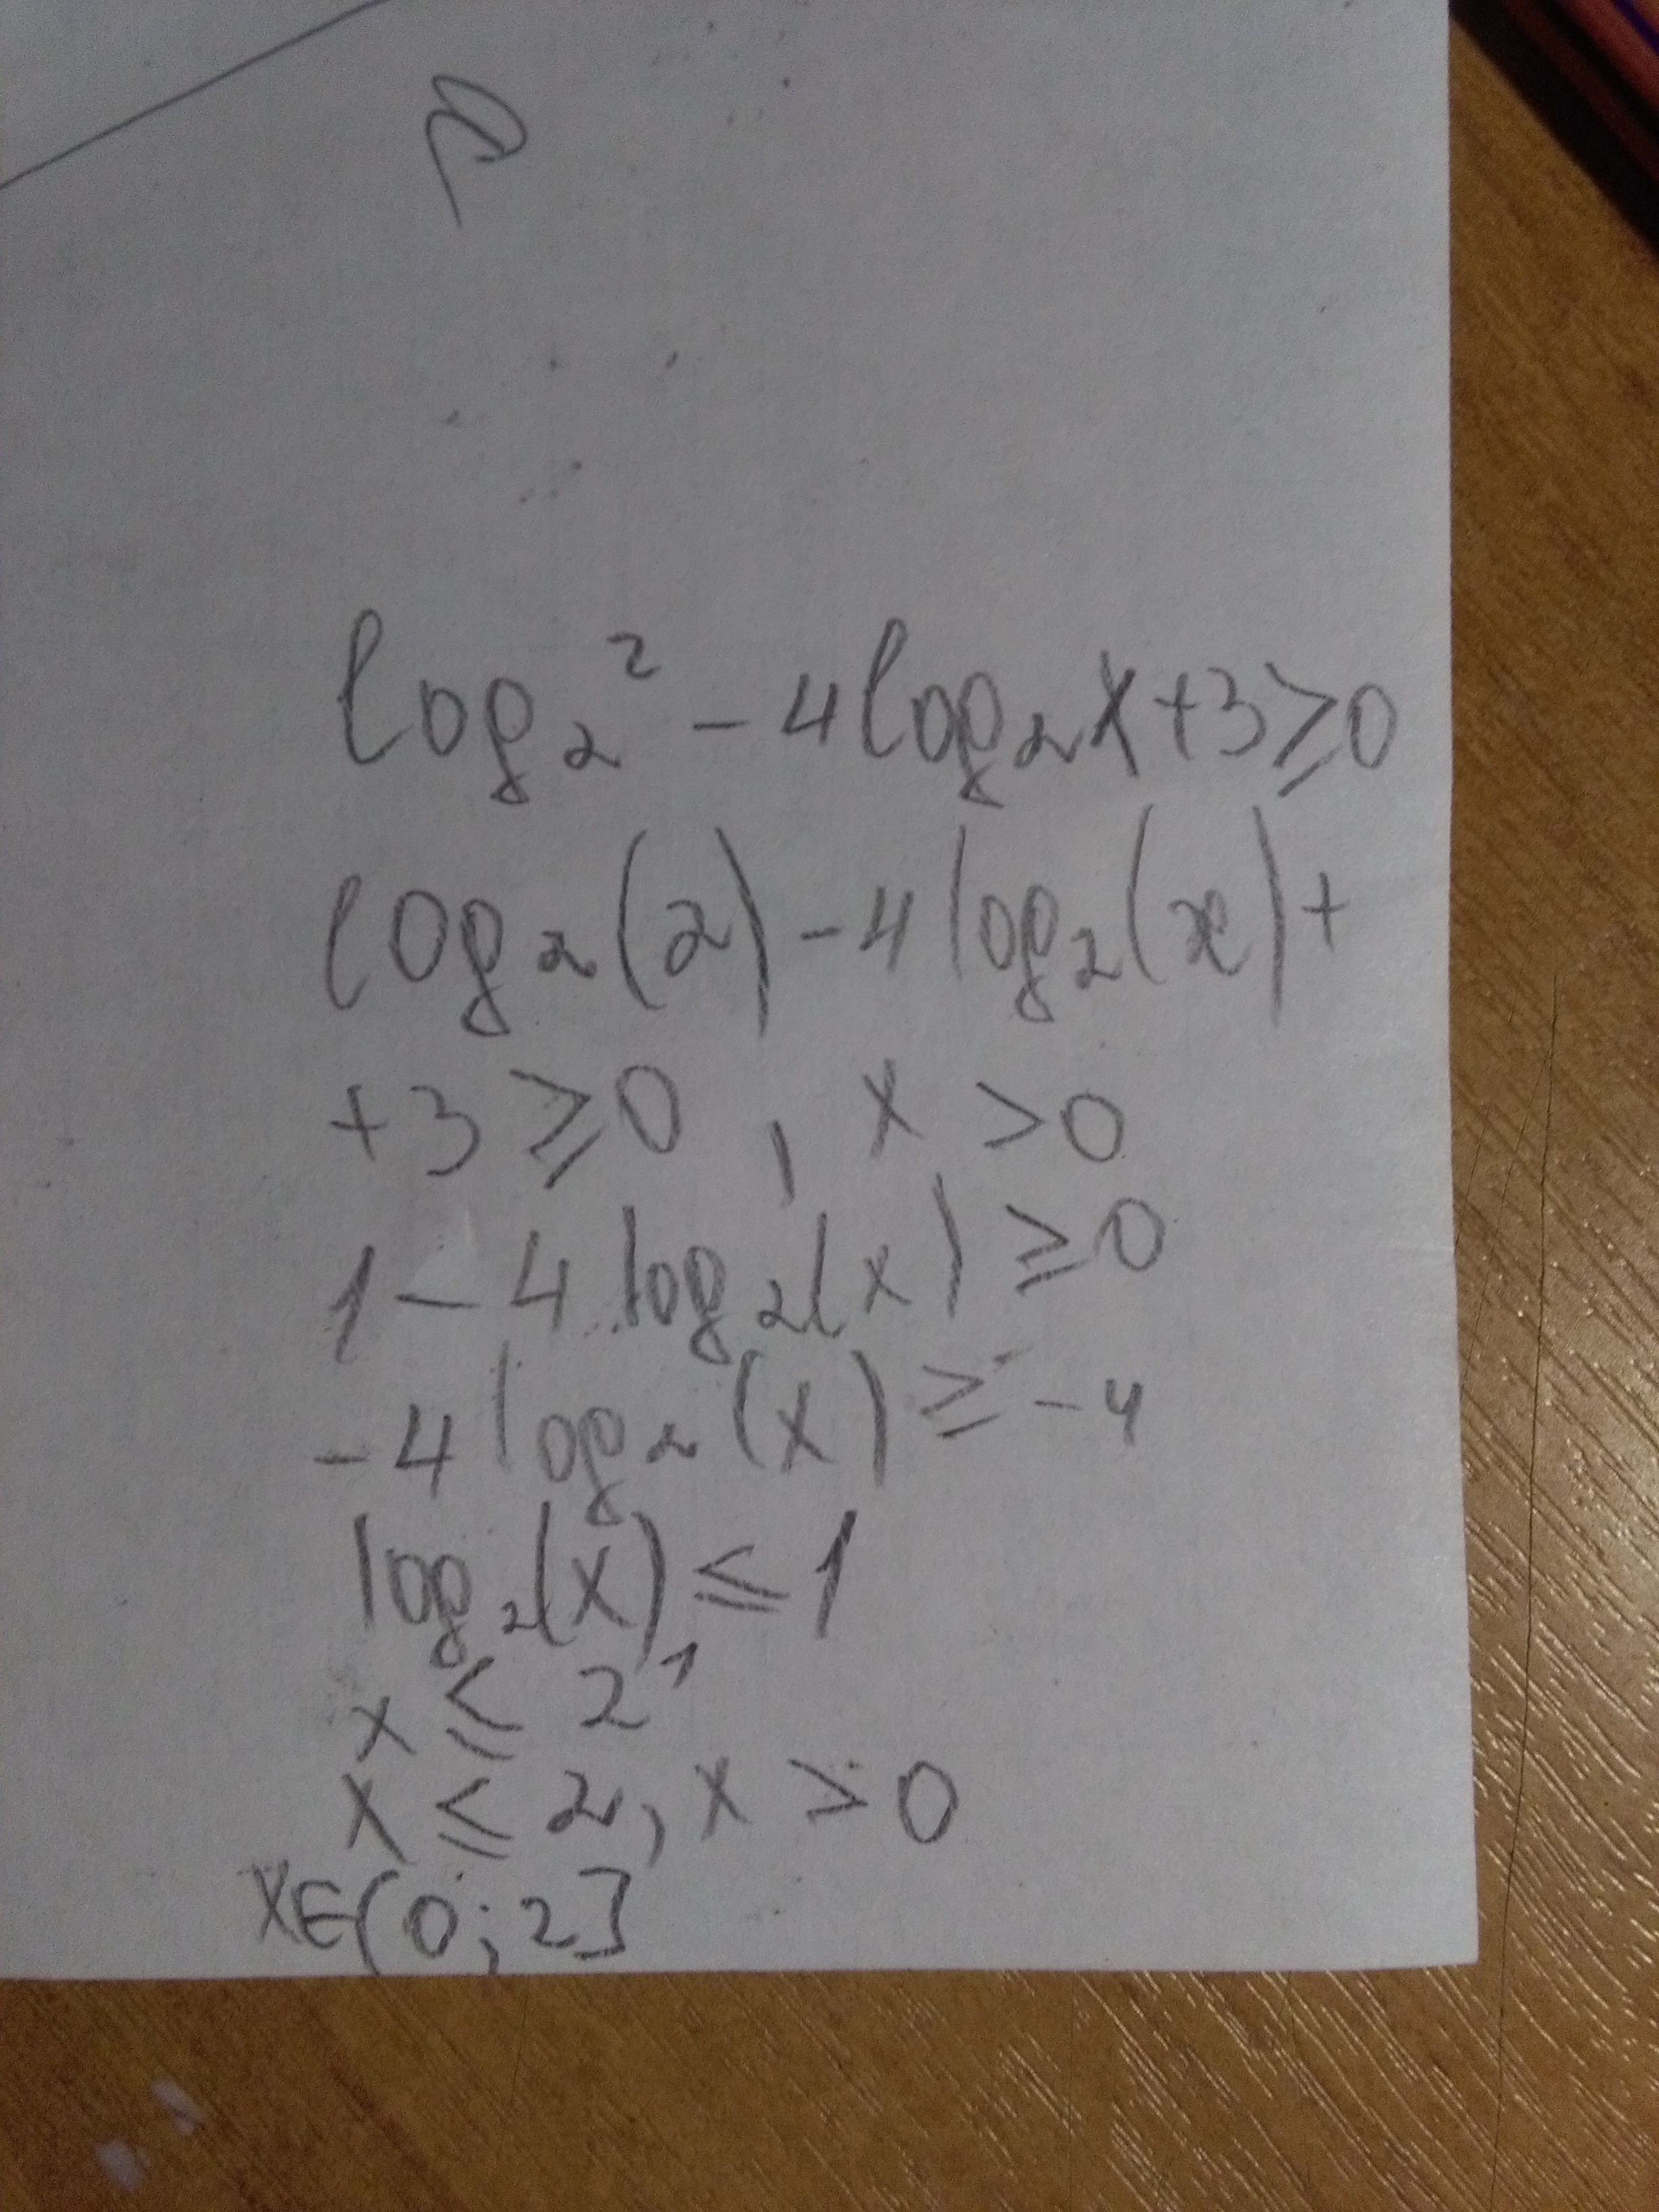 log₂² - 4log₂x+3≥0
log₂(2)-4log₂(x)+
+3≥0, x>0
1-4log₂(x)≥0
-4log₂(x)≥-4
log₂(x)≤1
x≤2¹
x≤2, x>0
x∈(0;2]